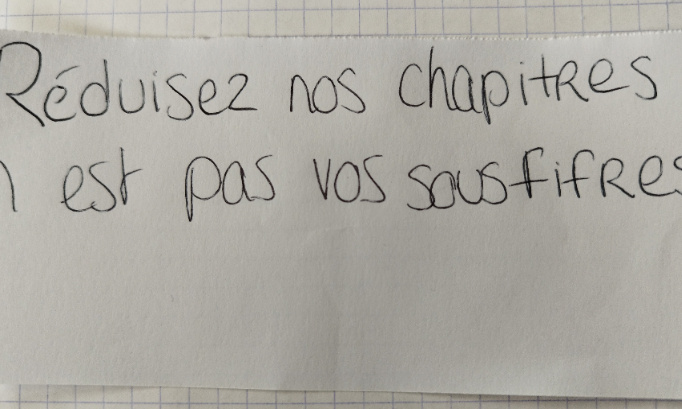 Réduisez nos chapitres
est pas vos sousfifres